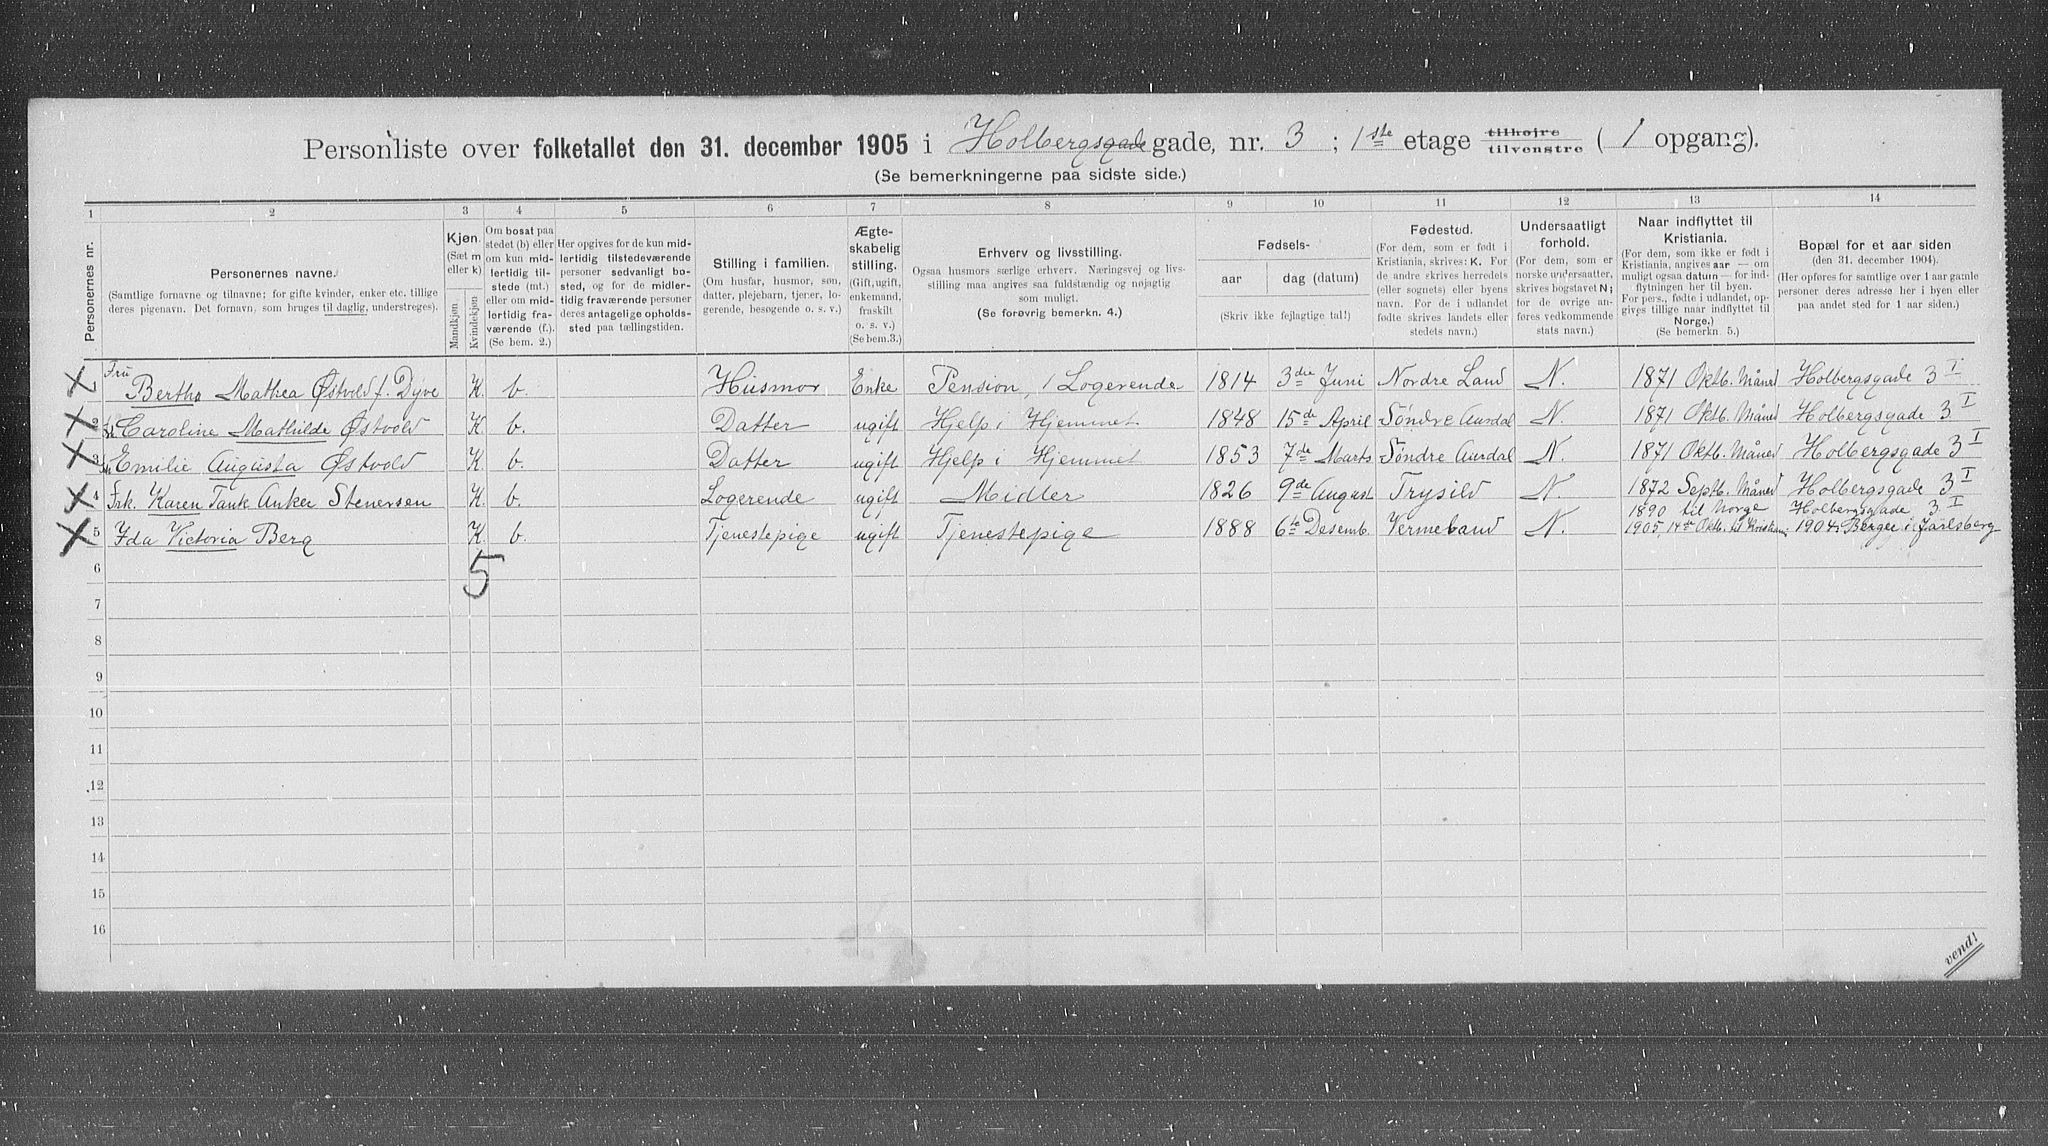 Personliste over folketallet den 31. december 1905 i Holbergsgade gade, nr. 3 ; 1ste etage tilhøjre tilvenstre ( 1 opgang).
(Se bemerkningerne paa sidste side.)
1 2 3 4 5 6 7 8 9 10 11 12 13 14
Personernes nr.
Personernes navne.
(Samtlige fornavne og tilnavne; for gifte kvinder, enker etc. tillige
deres pigenavn. Det fornavn, som bruges til daglig, understreges).
Kjøn.
(Sæt m
eller k)
Mandkjøn.
Kvindekjøn.
Om bosat paa
stedet (b) eller
om kun mid-
lertidig til-
stede (mt.)
eller om mid-
lertidig fra-
værende (f.).
(Se bem. 2.)
Her opgives for de kun mid-
lertidig tilstedeværende
personer sedvanligt bo-
sted, og for de midler-
tidig fraværende personer
deres antagelige opholds-
sted paa tællingstiden.
Stilling i familien.
(Om husfar, husmor, søn,
datter, plejebarn, tjener, lo-
gerende, besøgende o. s. v.)
Ægte-
skabelig
stilling.
(Gift, ugift,
enkemand,
fraskilt
o. s. v.)
(Se bem.3.)
Erhverv og livsstilling.
Ogsaa husmors særlige erhverv. Næringsvej og livs-
stilling maa angives saa fuldstændig og nøjagtig
som muligt.
(Se forøvrig bemerkn. 4.)
Fødsels-
aar
dag (datum)
(Skriv ikke fejlagtige tal!)
Fødested.
(For dem, som er født i
Kristiania, skrives: K. For
de andre skrives herredets
(eller sognets) eller byens
navn. For de i udlandet
fødte skrives landets eller
stedets navn.)
Undersaatligt
forhold.
(For dem, som er
norske undersaatter,
skrives bogstavet N;
for de øvrige an-
føres vedkommende
stats navn.)
Naar indflyttet til
Kristiania.
(For dem, som ikke er født i
Kristiania, angives aar — om
muligt ogsaa datum — for ind-
flytningen her til byen.
For pers., fødte i udlandet, op-
gives tillige naar indflyttet til
Norge.)
(Se bemerkn. 5.)
Bopæl for et aar siden
(den 31. december 1904).
(Her opføres for samtlige over 1 aar gamle
personer deres adresse her i byen eller
paa andet sted for 1 aar siden.)
Fru
Bertha Mathea Østvold f. Dyve K. b. Husmor Enke Pension, 1 Logerende 1814 3die Juni Nordre Land N. 1871 Oktb. Måned Holbergsgade 3 I
2 Caroline Mathilde Østvold K. b. Datter ugift Hjelp i Hjemmet 1848 15de April Søndre Aurdal N. 1871 Oktb. Måned Holbergsgade 3 I
3 Emilie Augusta Østvold K. b. Datter ugift Hjelp i Hjemmet 1853 7de Marts Søndre Aurdal N. 1871 Oktb. Måned Holbergsgade 3 I
4 Frk. Karen Tank Anker Stenersen K. b. Logerende ugift Midler 1826 9de August Trysild N. 1872 Septb. Måned Holbergsgade 3 I
1890 til Norge Holbergsgade 3 I
5 Ida Victoria Berg K b. Tjenestepige ugift Tjenestepige 1888 6te Desemb. Vermeland N. 1905, 14de Oktb. til Kristian; 1904. Berger i Jarlsberg
5
6
7
8
9
10
11
12
13
14
15
16
vend!